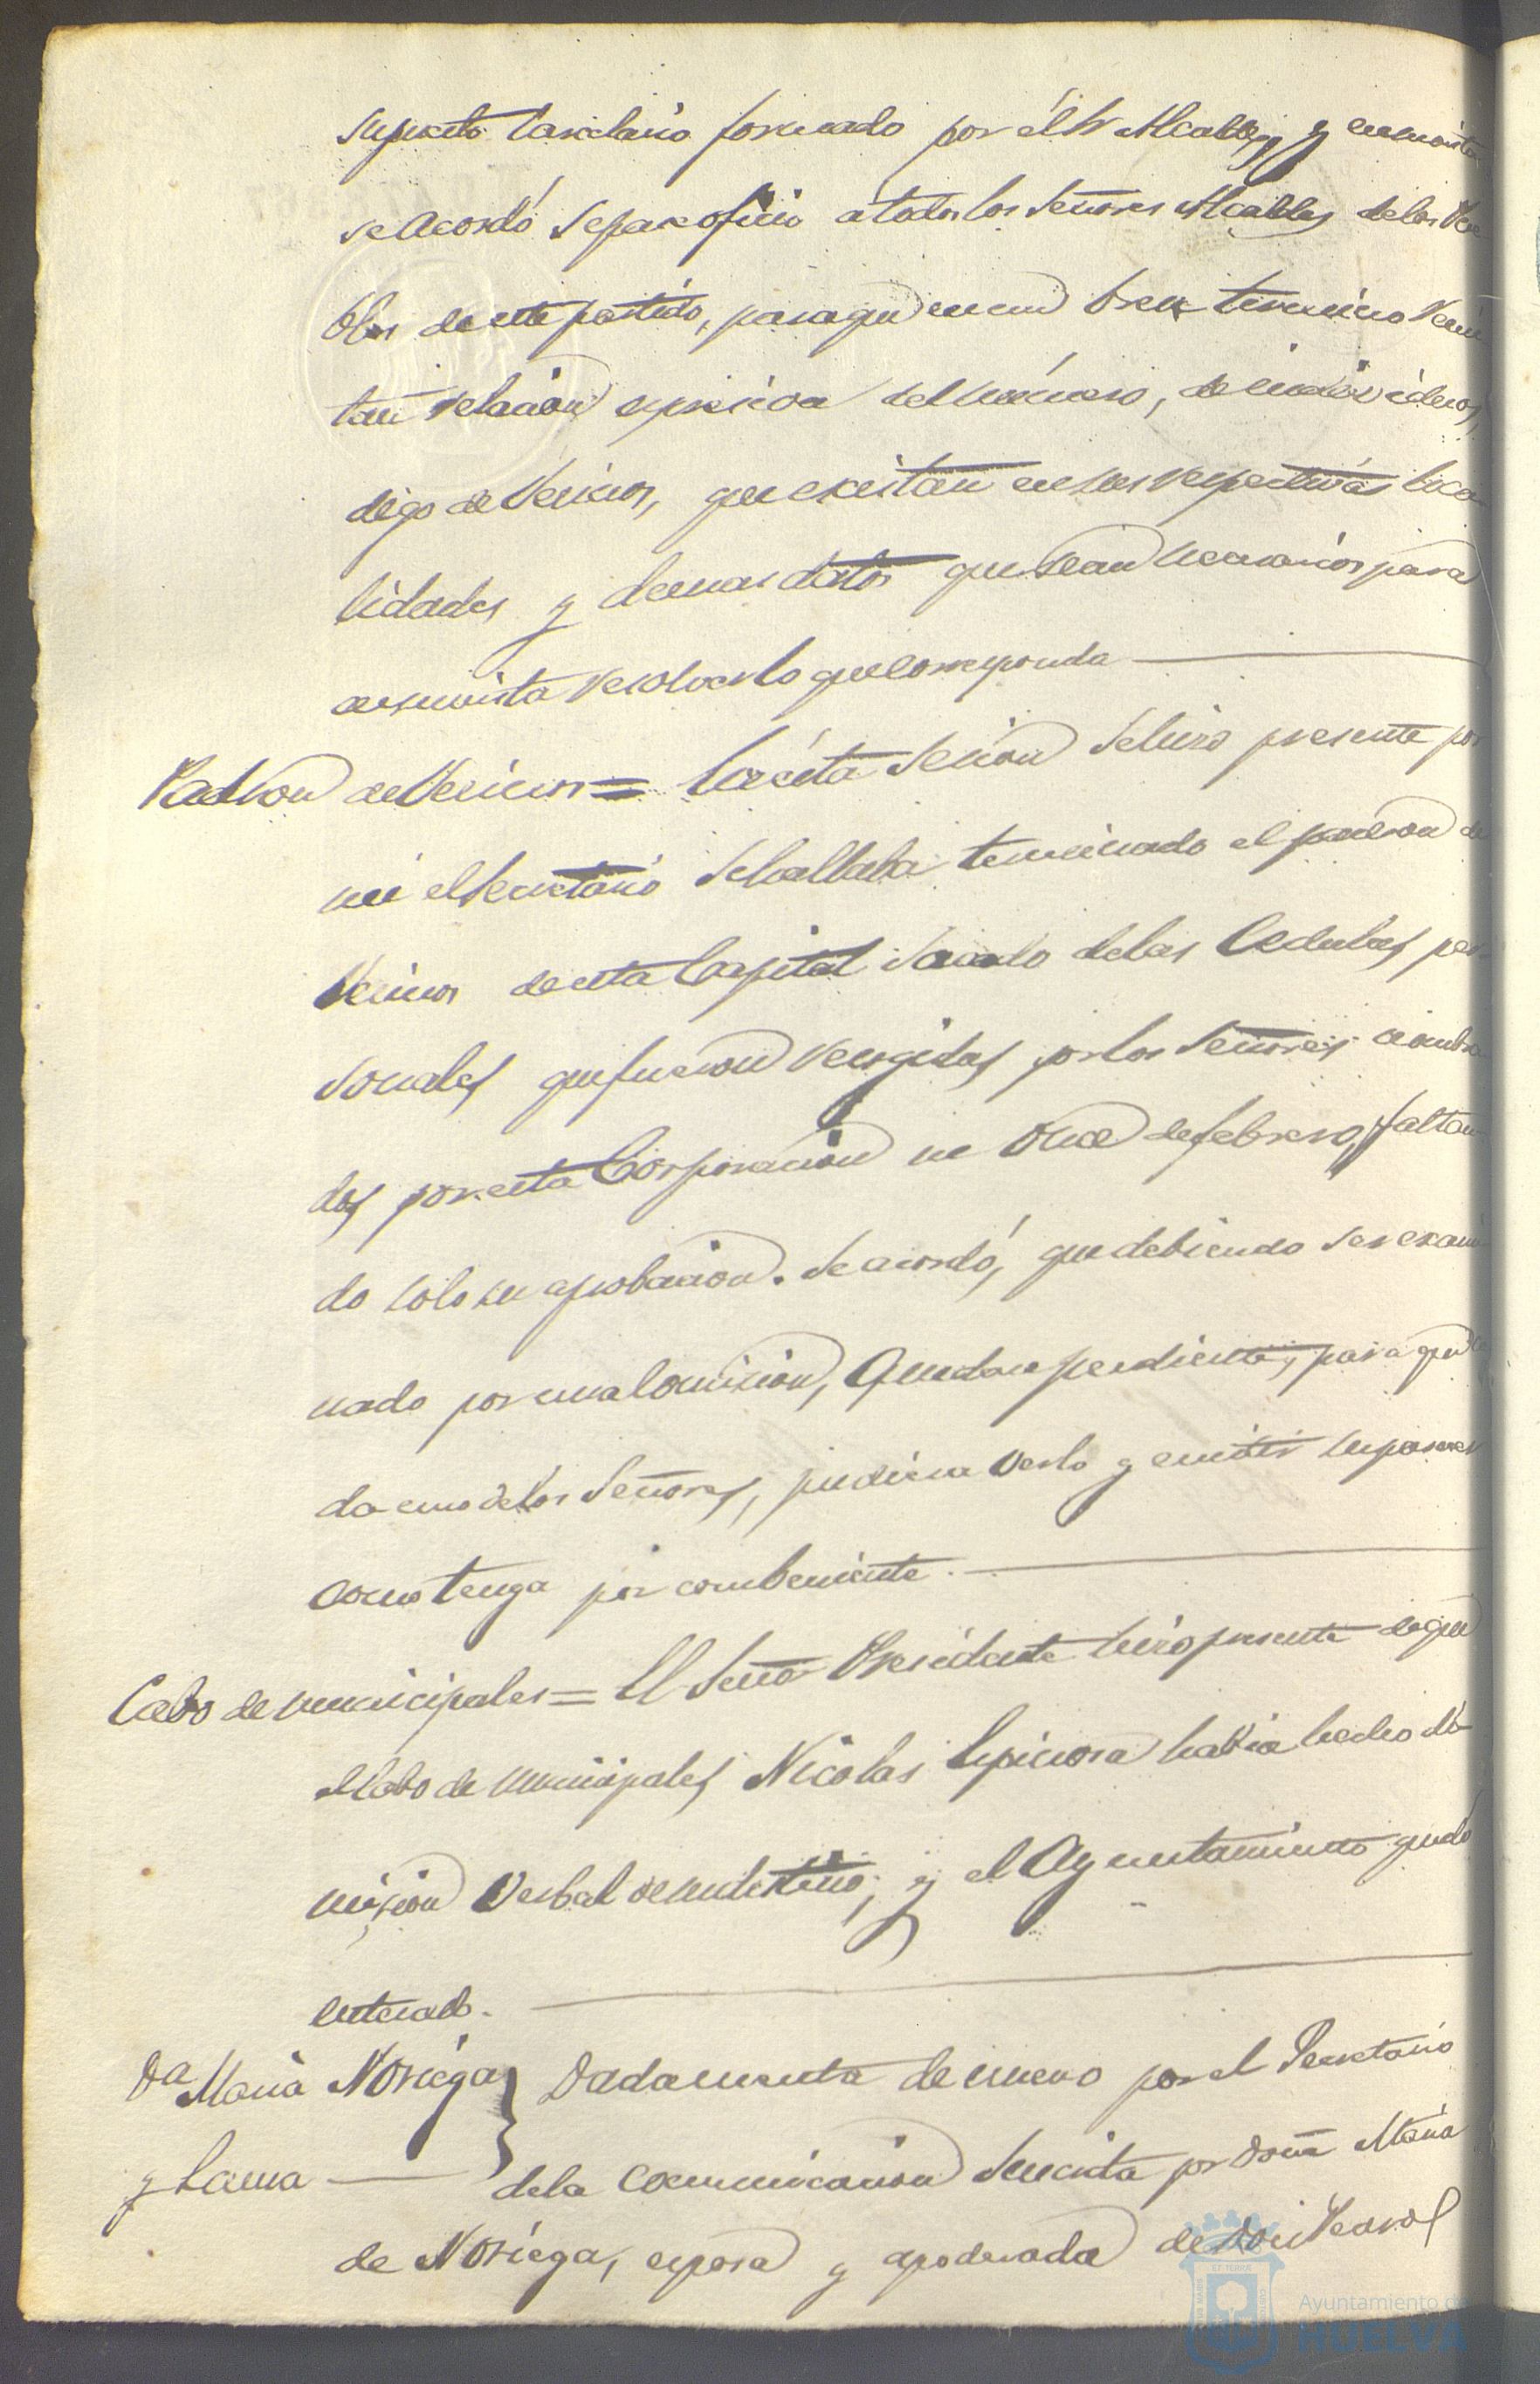 supuesto Carcelario formado por el Sr Alcalde, y en su vista
se acordó se pase oficio a todos los Señores Alcaldes de los Pue
blos de este partido, para que en un breve termino remi
tan relacion espresiva del numero, de individuos,
digo de Vecinos, que existan en sus respectivas loca
lidades y demas datos que sean necesarios para
en su vista resolver lo que corresponda
Padron de Vecinos = En esta Sesion se hizo presente por
mi el Secretario se hallaba terminado el padron de
Vecinos de esta Capital sacado de las Cedulas per
sonales que fueron recogidas por los Señores nombra
dos por esta Corporacion en Once de febrero, faltan
do solo su aprobacion. Se acordó, que debiendo ser exami
nado por una Comision, Quedase pendiente, para que ca
da uno de los Señores, pudiera verlo y emitir su parecer
como tenga por combeniente.
Cabo de municipales = El Señor Presidente hizo presente de que
el Cabo de municipales Nicolas Espinosa habia hecho di
mision Verbal de su destino; y el Ayuntamiento quedó
enterado.
Da Maria Noriega } Dada cuenta de nuevo por el Secretario
y Lama de la Comunicacion suscrita por Doña Maria
de Noriega, esposa y apoderada de Don
Ayuntamiento de
HUELVA